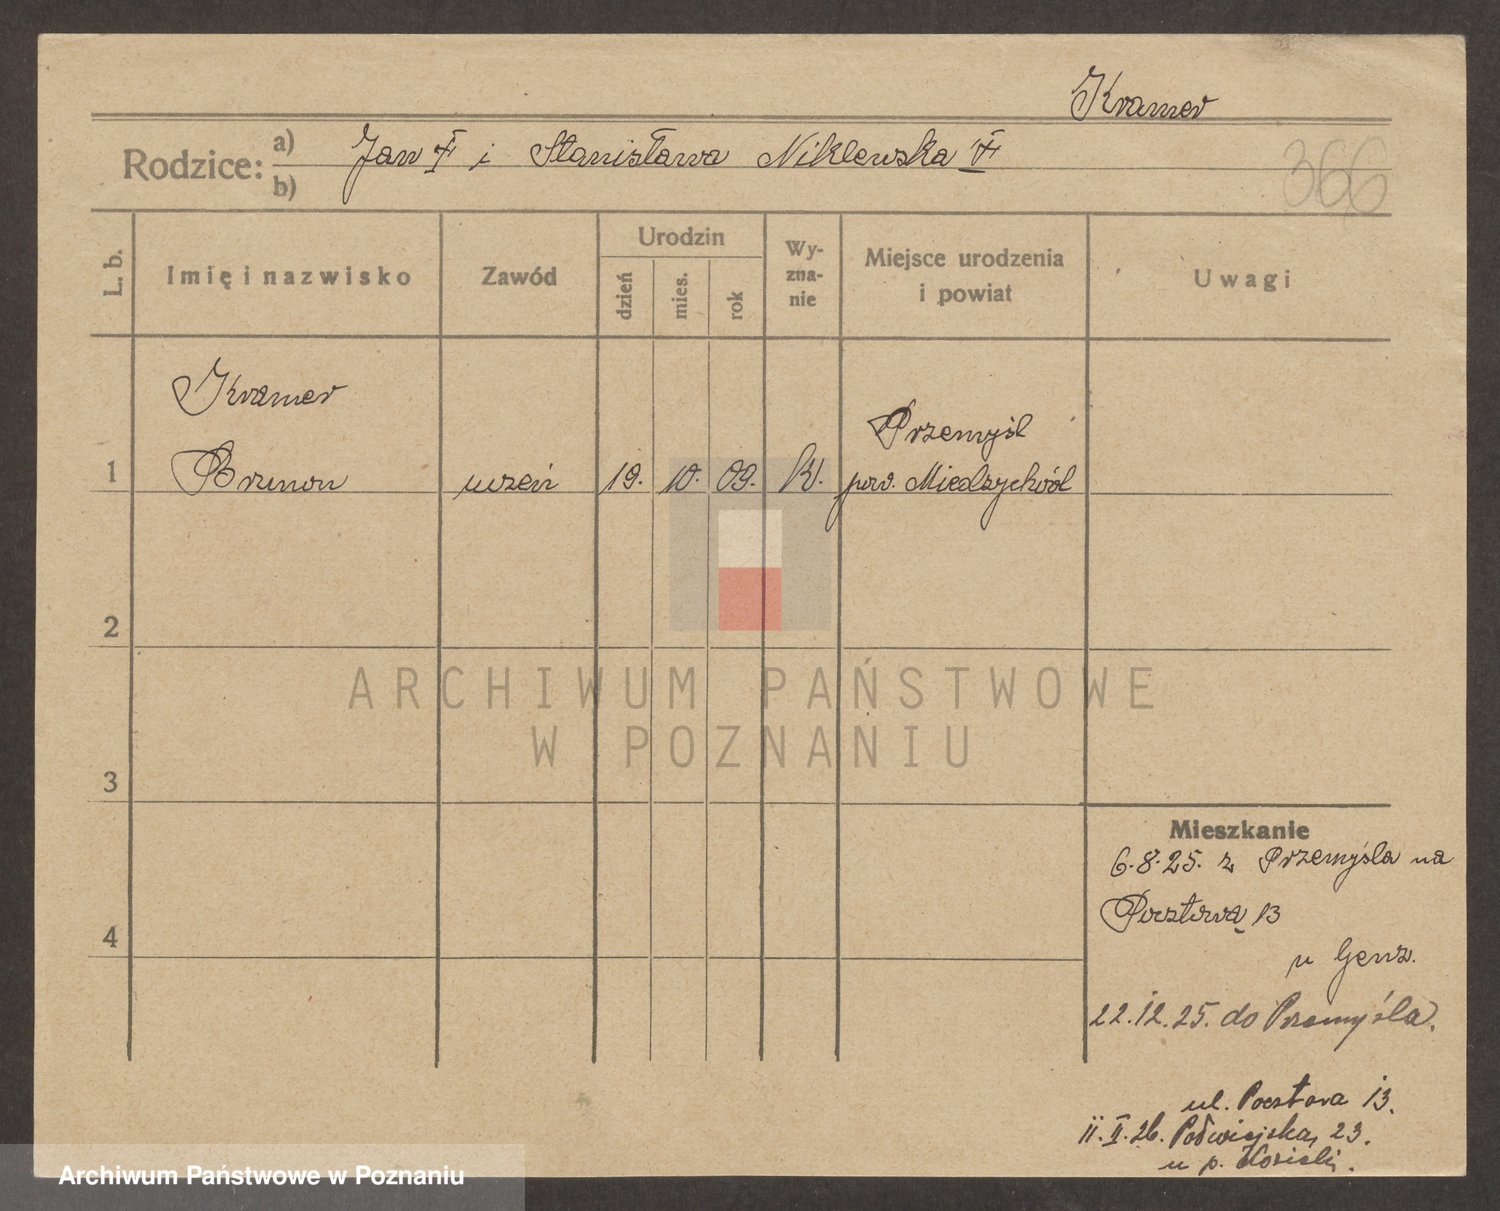 Kramer
Rodzice: a) Jan † i Stanisława Niklewska †
b)
366
L. b.
Imię i nazwisko
Zawód
Urodzin
dzień
mies.
rok
Wy-
zna-
nie
Miejsce urodzenia
i powiat
Uwagi
Kramer
Przemyśl
1 Brunon uczeń 19. 10. 09. K. pow. Międzychód
2
ARCHIWUM PAŃSTWOWE
W POZNANIU
3
Mieszkanie
6.8.25. z Przemyśla na
Pocztową 13
4
u Genz.
22.12.25. do Przemyśla.
ul. Pocztowa 13.
11.II.26. Podwiejska, 23.
u p.
Archiwum Państwowe w Poznaniu